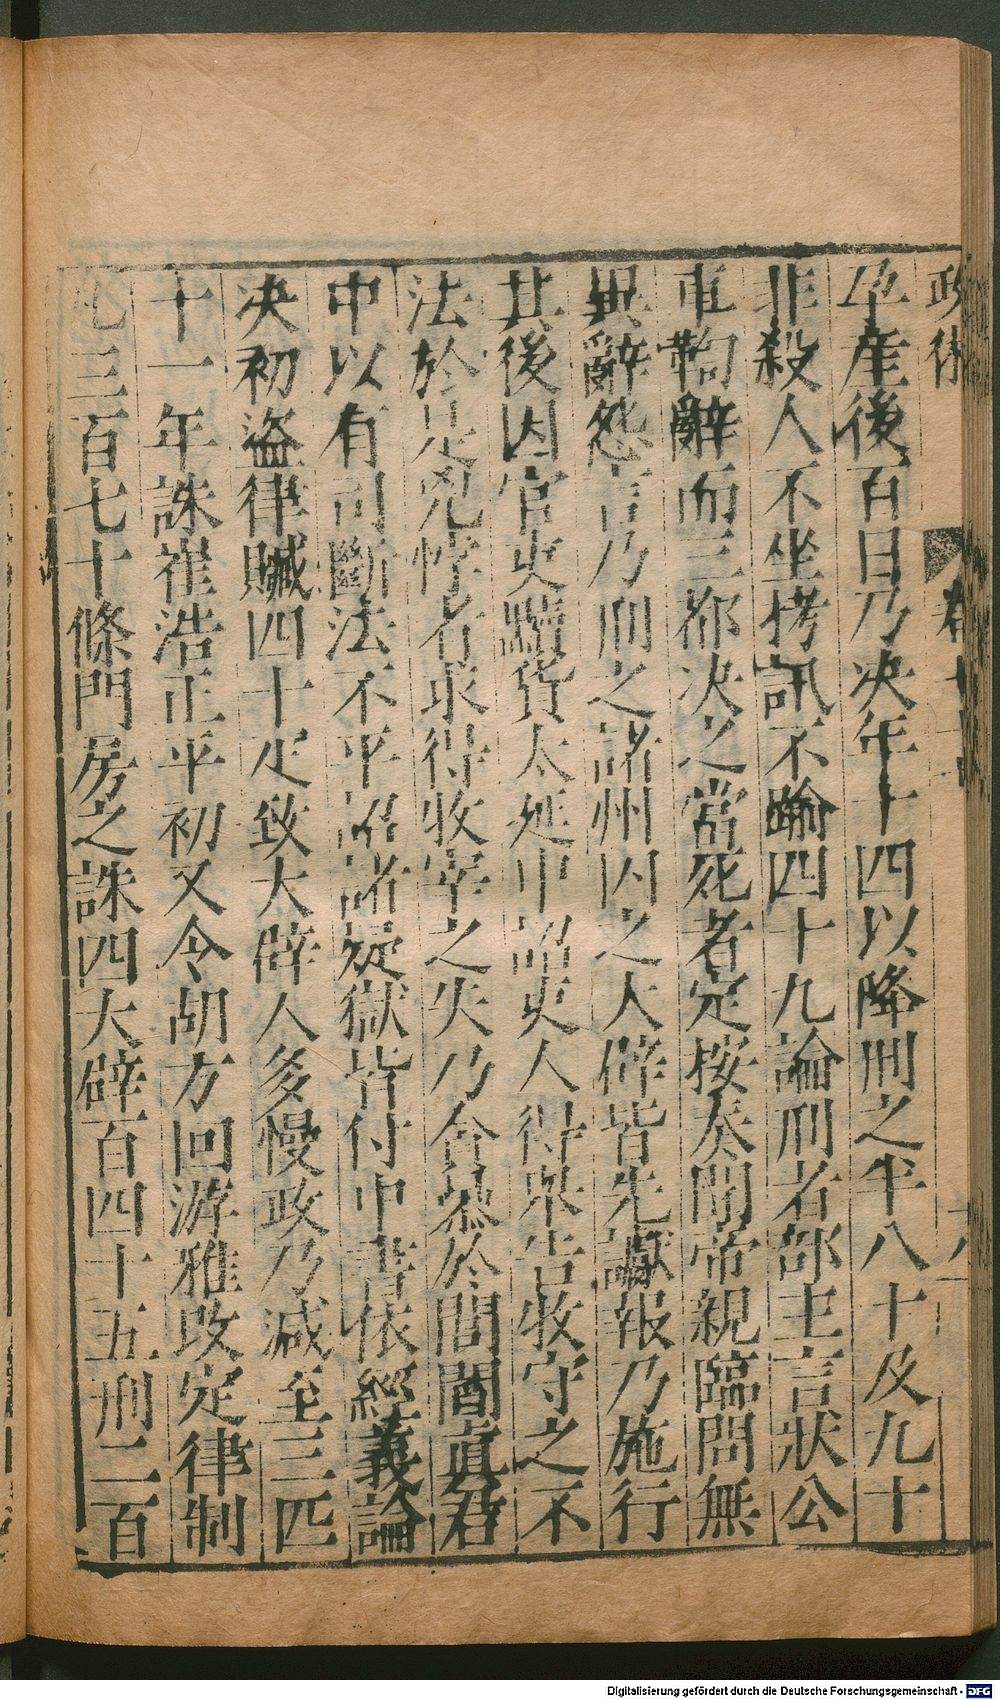 孕產後百日乃决年十四以降刑之半八十及九十
非殺人不坐栲訊不踰四十九論刑者部主言狀公
車鞫辭而三都决之當死者定按奏聞帝親臨問無
異辭怨言乃刑之諸州囚之大辟皆先讞報乃施行
其後因官吏黷貨太延中詔吏人得舉告牧守之不
法於是兇悖者求得牧宰之失乃貪暴於閭閻真君
中以有司斷法不平詔諸疑獄皆付中書依經義論
决初盜律贓四十疋致大辟人多慢政乃减至三匹
十一年誅崔浩正平初又令胡方回游雅改定律制
凡三百七十條門房之誅四大辟百四十五刑二百
Digitalisierung gefördert durch die Deutsche Forschungsgemeinschaft - DFG